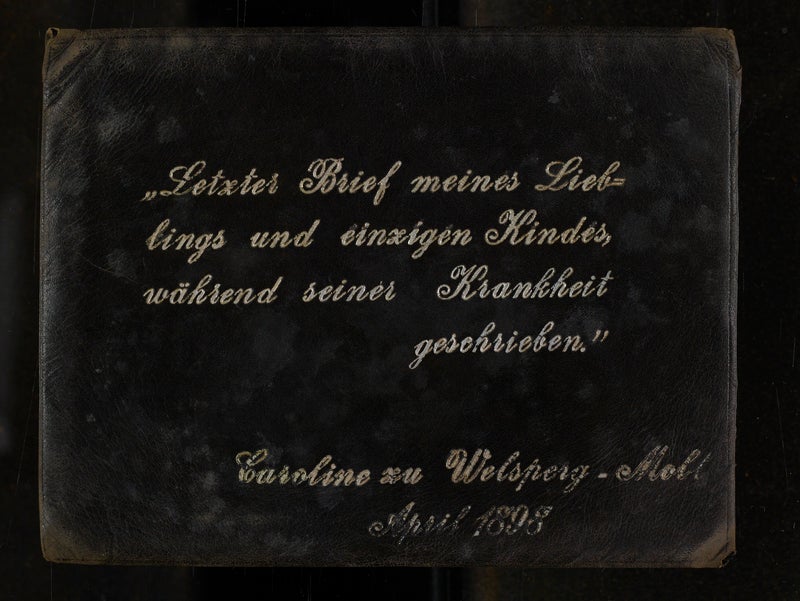 „Letzter Brief meines Lieb=
lings und einzigen Kindes,
während seiner Krankheit
geschrieben."
Caroline zu Welsperg - Moll
April 1898